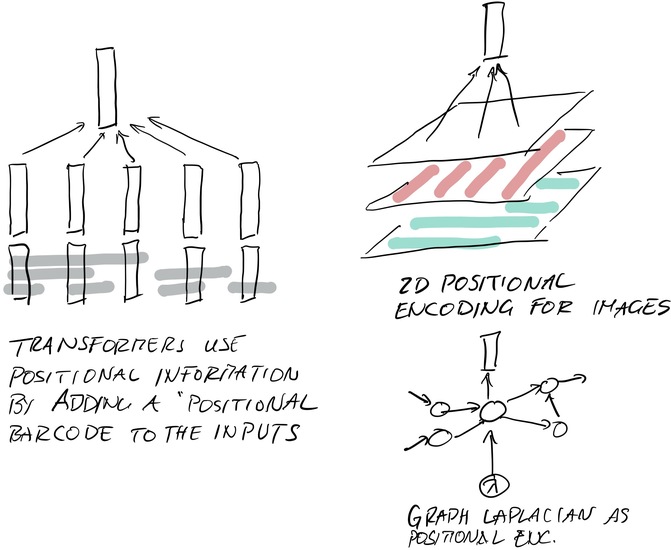 TRANSFORMERS USE
POSITIONAL INFORMATION
BY ADDING A "POSITIONAL
BARCODE TO THE INPUTS
2D POSITIONAL
ENCODING FOR IMAGES
λ
GRAPH LAPLACIAN AS
POSITIONAL ENC.